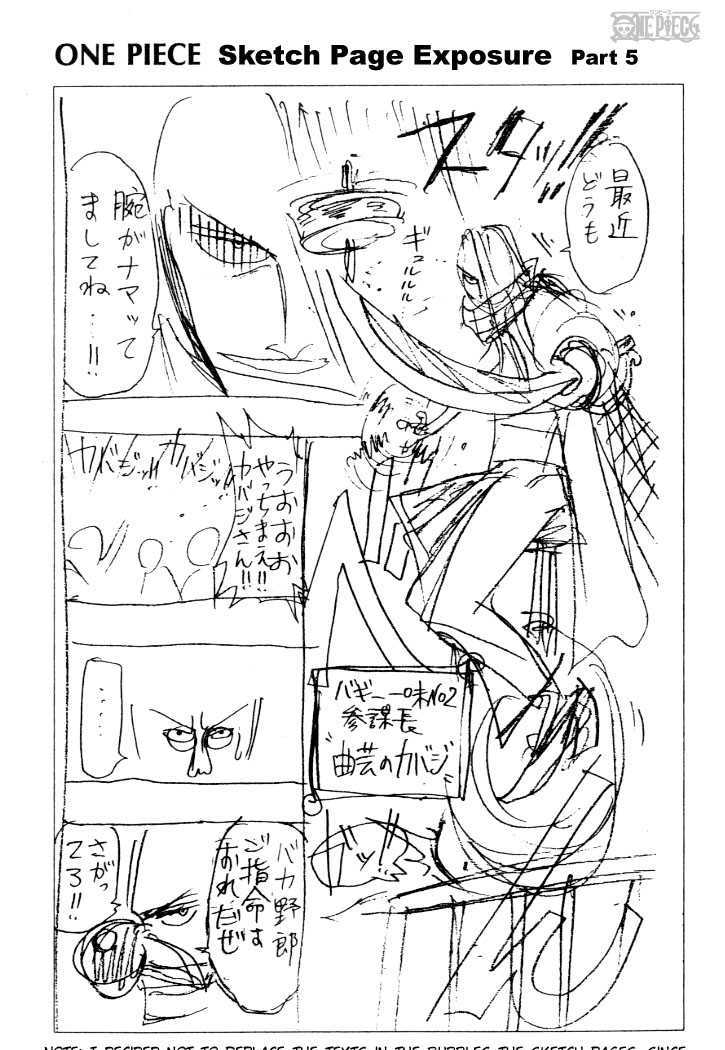 ONE PIECE
ONE PIECE Sketch Page Exposure Part 5
スタッ!!
最近
どうも
ギュルルル
腕がナマッて
ましてね…!!
カバジッ!! カバジッ!!
うおおお
やっちまえ!!
カバジさん!!
バギー一味No2
参謀長
"曲芸のカバジ"
……
バカ野郎
ご指命は
おれだぜ
さがっ
てろ!!
NOTE: I DECIDED NOT TO REPLACE THE TEXTS IN THE BUBBLES THE SKETCH PAGES, SINCE